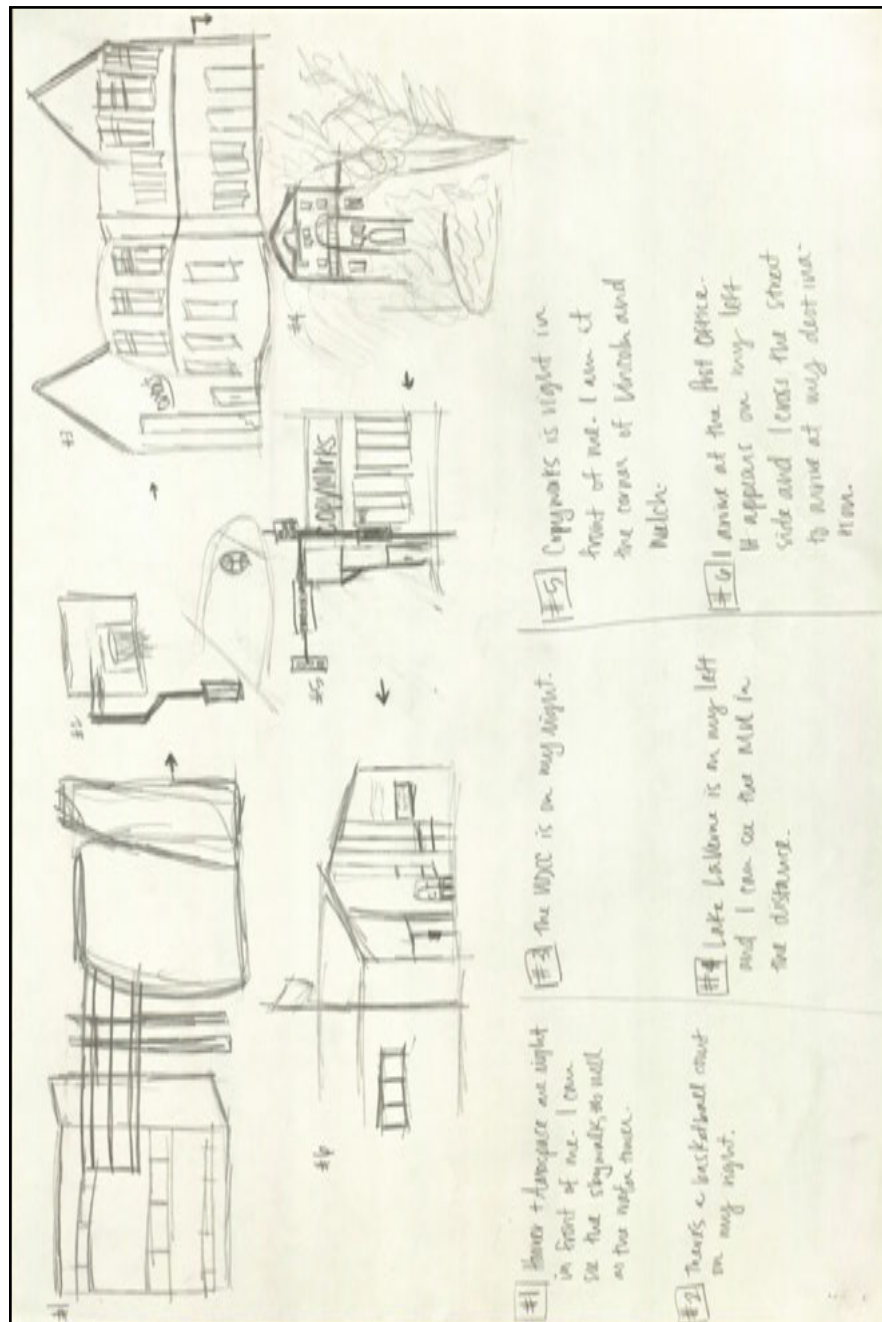 #1
#2
#3
#4
COPYWORKS
#5
#6
#1 Hoover + Aerospace are right
in front of me. I can
see the skywalk, as well
as the water tower.
#2 There's a basketball court
on my right.
#3 The WDCC is on my right.
#4 Lake LaVerne is on my left
and I can see the MU in
the distance.
#5 Copyworks is right in
front of me. I am at
the corner of Lincoln and
Welch.
#6 I arrive at the Post Office.
It appears on my left
side and I cross the street
to arrive at my destina-
tion.